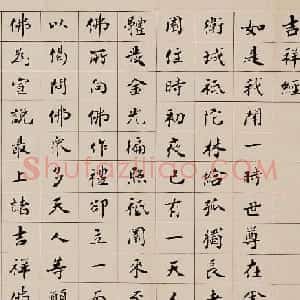 吉祥經
如是我聞一時世尊在舍
衛城祇陀林給孤獨長者
園住時初夜已有一天
體發金光徧照祇園來至
佛所向佛作禮卻立一面
以偈問佛眾多天人等願
佛為宣說最上諸吉祥
Shufaziliao.com